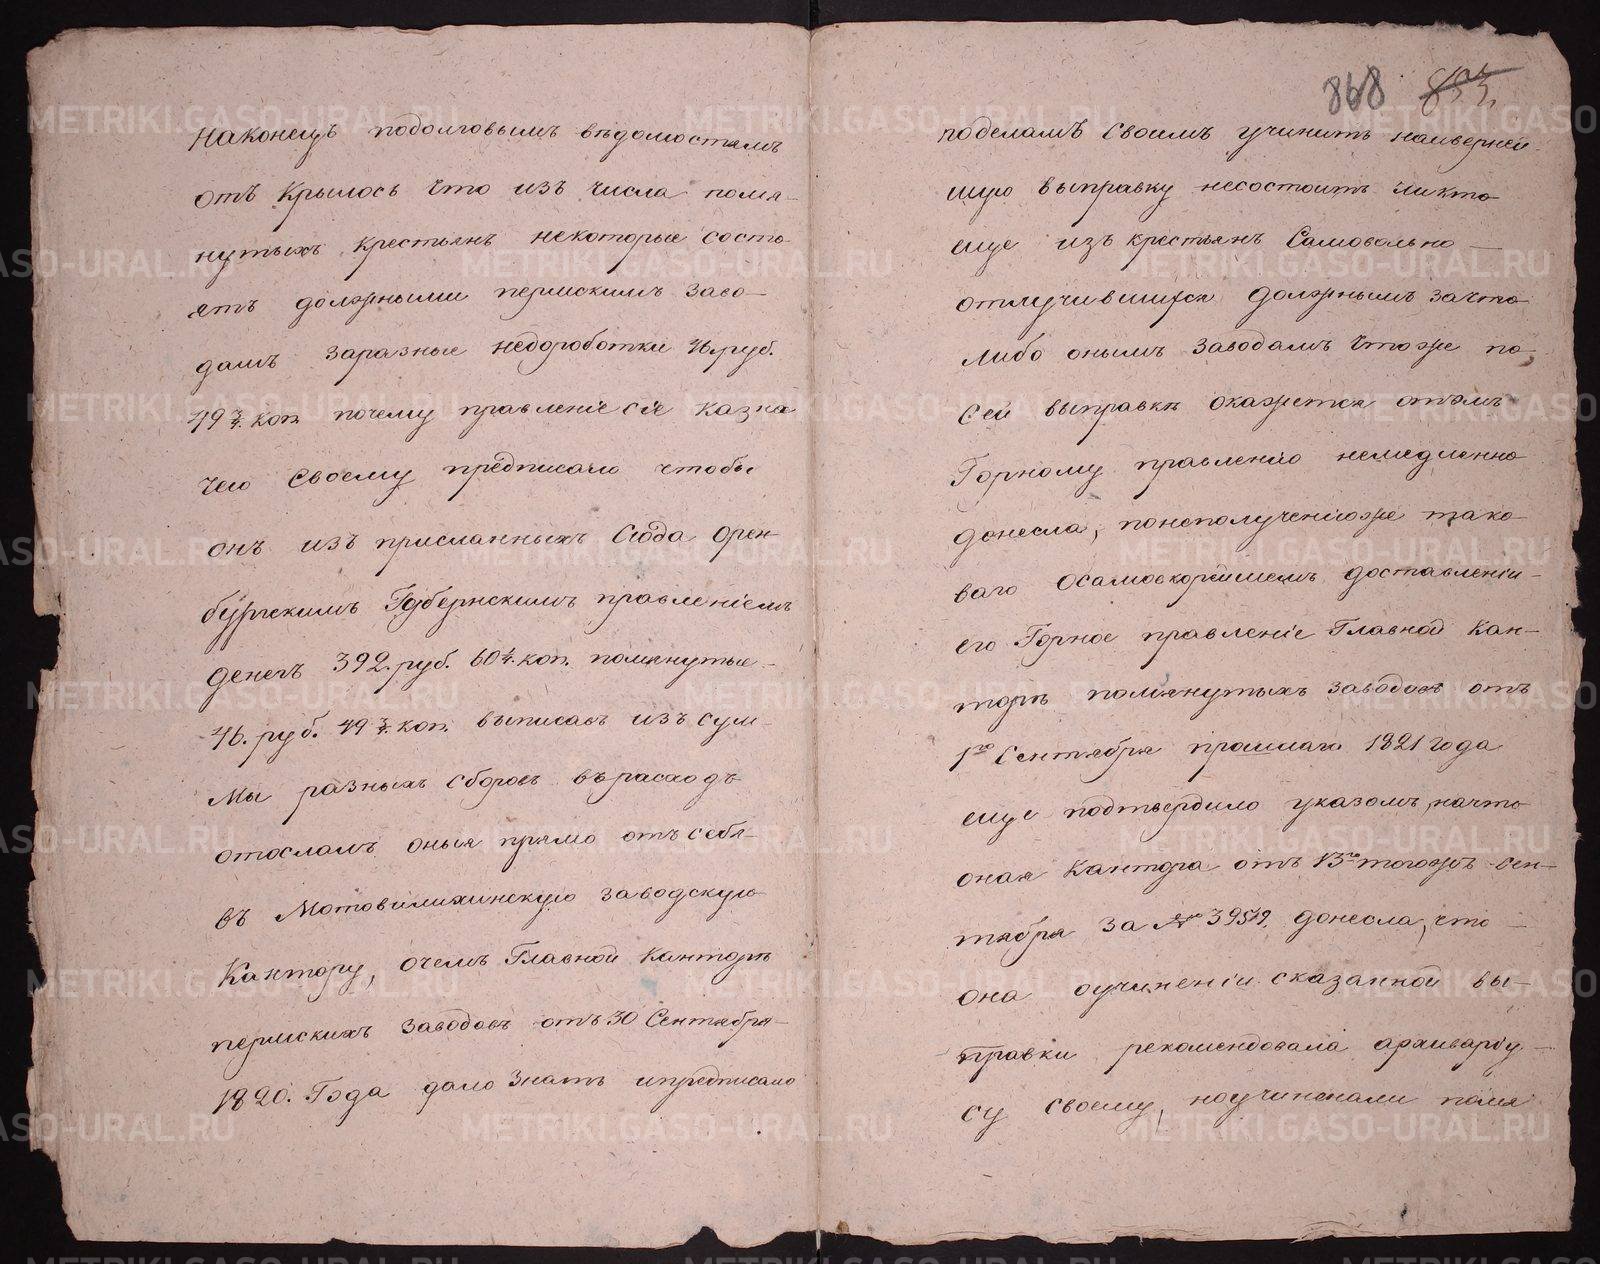 наконецъ подолговымъ вѣдомостямъ
отъ крылось что изъ числа помя-
нутыхъ крестьянъ некоторые состо-
ятъ должными пермскимъ заво-
дамъ заразные недороботки 46 руб.
49¾ коп. почему правленіе сіе казна
чею своему предписало чтобы
онъ изъ присланныхъ сюда орен-
бургскимъ Губернскимъ правленіемъ
денегъ 392. руб. 60¼. коп. помянутые-
46. руб. 49¾. коп. выписавъ изъ сум-
мы разныхъ сборовъ върасходъ
отослалъ оныя прямо отъ себя-
въ Мотовилихинскую заводскую
Кантору, очемъ Главной канторѣ
пермскихъ заводовъ отъ 30 Сентября-
1820. Года дало знать ипредписало
868 853.
поделамъ своимъ учинить наивернѣй-
шую выправку несостоитъ ликто
еще изъ крестьянъ Самовольно -
отлучившихся должнымъ зачто
либо онымъ заводамъ чтоже по
сей выправкѣ окажется отомъ
Горному правленію немедленно
донесла, понеполученіюже тако-
ваго осамоскорѣйшемъ доставленіи-
его Горное правленіе Главной Кан-
торѣ помянутыхъ заводовъ отъ
1го Сентября прошлаго 1821 года
еще подтвердило указомъ, начто
оная Кантора отъ 13го тогожъ Сен-
тября за № 3959. донесла, что -
она оучиненіи сказанной вы-
правки рекомендовала архиваріу-
су своему, ноучиненали помя
METRIKI.GASO-URAL.RU